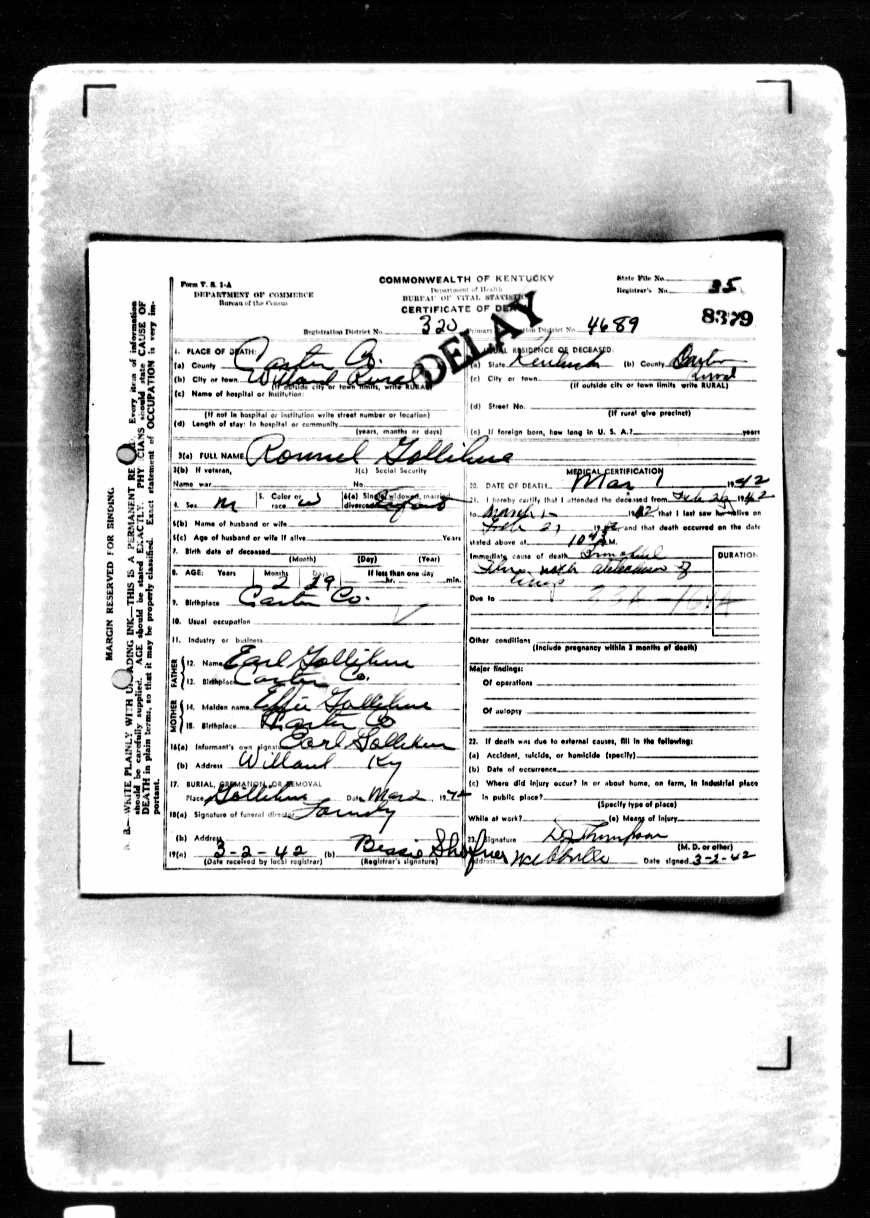 Form V. S. 1-A
DEPARTMENT OF COMMERCE
Bureau of the Census
COMMONWEALTH OF KENTUCKY
Department of Health
BUREAU OF VITAL STATISTICS
CERTIFICATE OF DEATH
DELAY
State File No.
Registrar's No. 35
8379
Registration District No. 320 Primary Registration District No. 4689
MARGIN RESERVED FOR BINDING
N. B.—WRITE PLAINLY WITH UNFADING INK—THIS IS A PERMANENT RECORD. Every item of information
should be carefully supplied. AGE should be stated EXACTLY. PHYSICIANS should state CAUSE OF
DEATH in plain terms, so that it may be properly classified. Exact statement of OCCUPATION is very im-
portant.
1. PLACE OF DEATH:
(a) County Carter Co.
(b) City or town Willard Rural
(If outside city or town limits, write RURAL)
(c) Name of hospital or institution:
(If not in hospital or institution write street number or location)
(d) Length of stay: In hospital or community
(years, months or days)
2. USUAL RESIDENCE OF DECEASED:
(a) State Kentucky (b) County Carter
(c) City or town Rural
(If outside city or town limits write RURAL)
(d) Street No.
(If rural give precinct)
(e) If foreign born, how long in U. S. A.? years
3(a) FULL NAME Ronnel Gollihue
3(b) If veteran, 3(c) Social Security
Name war No.
4. Sex M 5. Color or race W 6(a) Single, widowed, married, divorced Infant
6(b) Name of husband or wife
6(c) Age of husband or wife if alive Years
7. Birth date of deceased
(Month) (Day) (Year)
8. AGE: Years Months Days If less than one day
2 29 hr. min.
9. Birthplace Carter Co.
10. Usual occupation
11. Industry or business
FATHER
12. Name Earl Gollihue
13. Birthplace Carter Co.
MOTHER
14. Maiden name Effie Gollihue
15. Birthplace Carter Co
16(a) Informant's own signature Earl Gollihue
(b) Address Willard Ky
17. BURIAL, CREMATION, OR REMOVAL
Place Gollihue Date Mar 2, 1942
18(a) Signature of funeral director Family
(b) Address
19(a) 3-2-42 (b) Bessie Shufner
(Date received by local registrar) (Registrar's signature)
MEDICAL CERTIFICATION
20. DATE OF DEATH Mar 1 1942
21. I hereby certify that I attended the deceased from Feb 1942
to March 1 1942, that I last saw h alive on
Feb 27 1942 and that death occurred on the date
stated above at 10 M.
Immediate cause of death
DURATION
of
lungs
Due to
Other conditions
(Include pregnancy within 3 months of death)
Major findings:
Of operations
Of autopsy
22. If death was due to external causes, fill in the following:
(a) Accident, suicide, or homicide (specify)
(b) Date of occurrence
(c) Where did injury occur? In or about home, on farm, in industrial place
in public place?
(Specify type of place)
While at work? (e) Means of injury
23. Signature Thompson
(M. D. or other)
Address Webbville Date signed 3-2-42